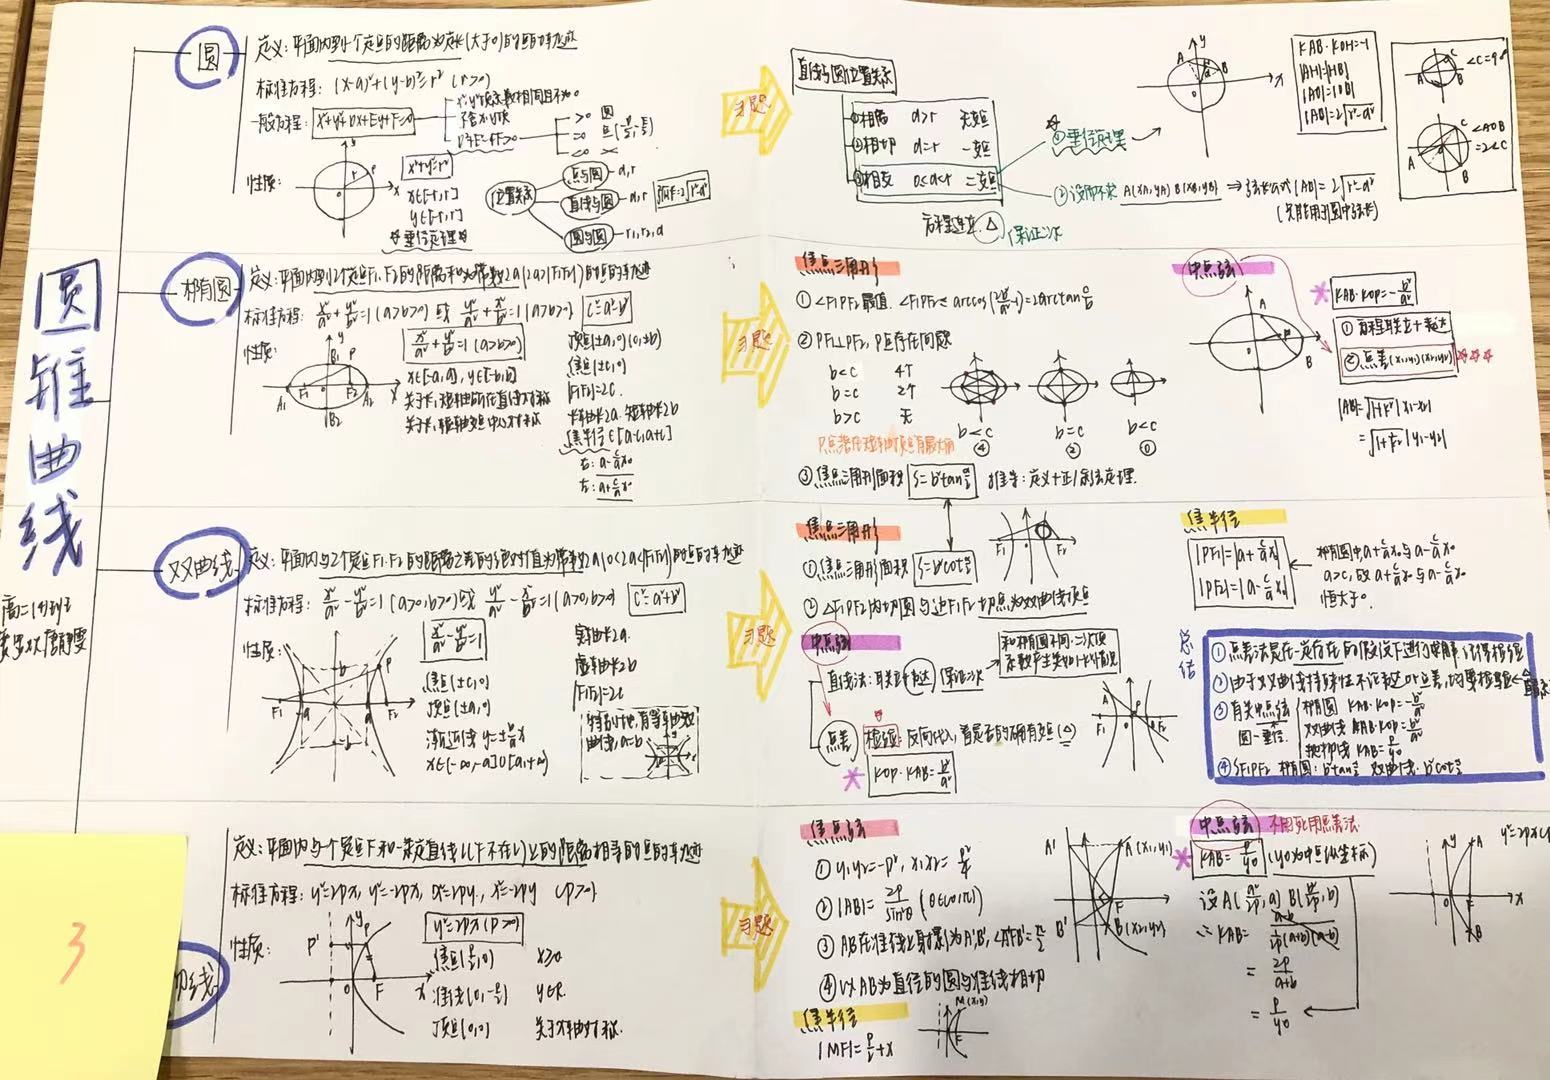 圆锥曲线
圆
定义：平面内到一个定点的距离为定长(大于0)的点的轨迹
标准方程：(x-a)²+(y-b)²=r² (r>0)
一般方程：x²+y²+Dx+Ey+F=0
x²y²项系数相同且不为0
不含xy项
D²+E²-4F>0
>0 圆
=0 点(-D/2,-E/2)
<0 ×
性质：
x²+y²=r²
x∈[-r,r]
y∈[-r,r]
垂径定理
位置关系
点与圆 d,r
直线与圆 d,r 弦长=2√r²-d²
圆与圆 r₁,r₂,d
习题
直线与圆位置关系
①相离 d>r 无交点
②相切 d=r 一交点
③相交 0≤d<r 二交点
方程联立 △ 保证二次
①垂径定理
②设而不求 A(xA,yA) B(xB,yB) ⇒ 弦长公式|AB|=2√r²-d²
(只能用于圆中弦长)
KAB·KOH=-1
|AH|=|HB|
|AO|=|OB|
|AB|=2√r²-d²
∠C=90°
∠AOB
=2∠C
椭圆
定义：平面内到2个定点F₁,F₂的距离和为常数2a(2a>|F₁F₂|)的点的轨迹
标准方程：x²/a²+y²/b²=1(a>b>0) 或 y²/a²+x²/b²=1(a>b>0) c²=a²-b²
性质：
x²/a²+y²/b²=1(a>b>0)
x∈[-a,a], y∈[-b,b]
关于长,短轴所在直线对称
关于长,短轴交点中心对称
顶点(±a,0)(0,±b)
焦点(±c,0)
|F₁F₂|=2c
长轴长2a 短轴长2b
焦半径∈[a-c,a+c]
右：a-c/a x₀
左：a+c/a x₀
习题
焦点三角形
①∠F₁PF₂最值 ∠F₁PF₂≤arccos(2b²/a²-1)=2arctan c/b
②PF₁⊥PF₂,P点存在问题
b<c 4个
b=c 2个
b>c 无
b<c
④
b=c
②
b<c
⓪
P点落在短轴顶点有最大角
③焦点三角形面积 S=b²tan θ/2 推导：定义+正/余弦定理
中点弦
KAB·KOP=-b²/a²
①方程联立+表达
②点差(x₁,y₁)(x₂,y₂)
|AB|=√1+k² |x₁-x₂|
=√1+1/k² |y₁-y₂|
双曲线
定义：平面内与2个定点F₁,F₂的距离之差的绝对值为常数2a(0<2a<|F₁F₂|)的点的轨迹
标准方程：x²/a²-y²/b²=1(a>0,b>0)或 y²/a²-x²/b²=1(a>0,b>0) c²=a²+b²
性质：
x²/a²-y²/b²=1
焦点(±c,0)
顶点(±a,0)
渐近线 y=±b/a x
x∈(-∞,-a]∪[a,+∞)
实轴长2a
虚轴长2b
|F₁F₂|=2c
特别地,有等轴双
曲线,a=b
习题
焦点三角形
①焦点三角形面积 S=b²cot θ/2
②△F₁PF₂内切圆与边F₁F₂切点为双曲线顶点
中点弦
直线法：联立+表达 保证二次
和椭圆不同,二次项
系数产生类似1-k²情况
点差 检验：反向代入,看是否的确有交点(△)
KOP·KAB=b²/a²
焦半径
|PF₁|=|a+c/a x₀|
|PF₂|=|a-c/a x₀|
椭圆中,a+c/a x₀与a-c/a x₀
a>c,故a+c/a x₀与a-c/a x₀
恒大于0
总结
①点差法是在一定存在的假设下进行求解,记得检验
②由于双曲线特殊性,不论表达or点差,均要检验
③有关中点弦 椭圆 KAB·KOP=-b²/a²
圆—垂径 双曲线 KAB·KOP=b²/a²
抛物线 KAB=p/y₀
④S F₁PF₂ 椭圆：b²tan θ/2 双曲线：b²cot θ/2
3
定义：平面内与一个定点F和一条定直线l(F不在l)上的距离相等的点的轨迹
标准方程：y²=2px, y²=-2px, x²=2py, x²=-2py (p>0)
性质：
y²=2px(p>0)
焦点(p/2,0) x≥0
准线(0,-p/2) y∈R
顶点(0,0) 关于x轴对称
习题
焦点弦
①y₁y₂=-p², x₁x₂=p²/4
②|AB|=2p/sin²θ (θ∈(0,π))
③AB在准线上射影为A'B',∠A'FB'=π/2
④以AB为直径的圆与准线相切
焦半径
|MF|=p/2+x
M(x,y)
A(x₁,y₁)
B(x₂,y₂)
中点弦 不同处用点差法
KAB=p/y₀ (y₀为中点纵坐标)
设A(a²/2p,a) B(b²/2p,b)
∴KAB=a-b / 1/2p(a+b)(a-b)
=2p/a+b
=p/y₀